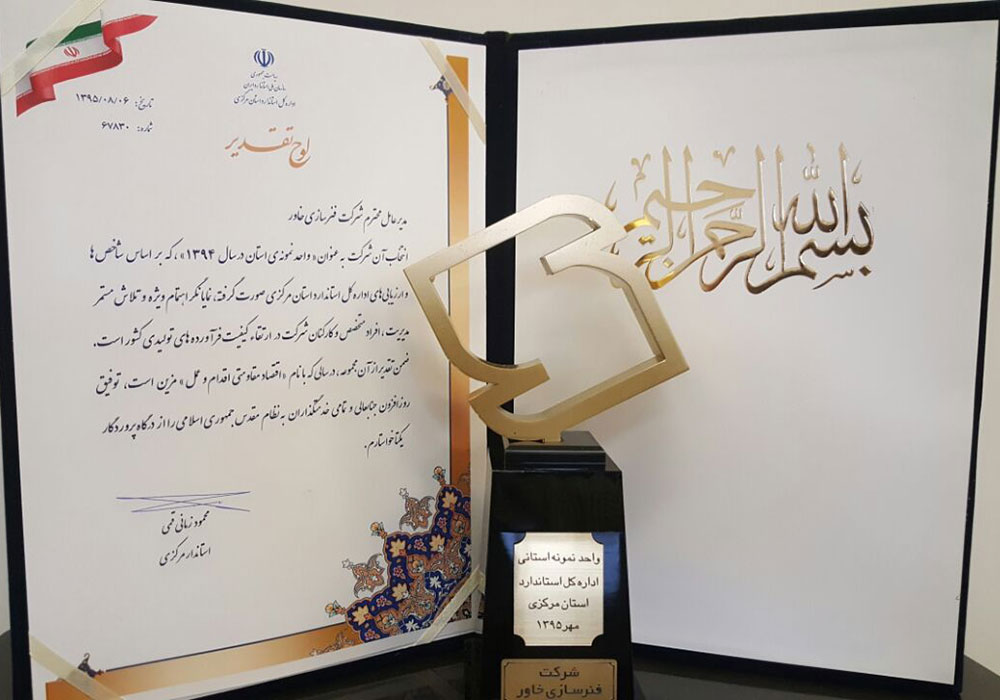 ریاست جمهوری
سازمان ملی استاندارد ایران
اداره کل استاندارد استان مرکزی
تاریخ: ۱۳۹۵/۰۸/۰۶
شماره: ۶۷۸۳۰
لوح تقدیر
مدیرعامل محترم شرکت فنرسازی خاور
انتخاب آن شرکت به عنوان « واحد نمونه ی استان در سال ۱۳۹۴ » ، که بر اساس شاخص ها
و ارزیابی های اداره کل استاندارد استان مرکزی صورت گرفته، نمایانگر اهتمام ویژه و تلاش مستمر
مدیریت ، افراد متخصص و کارکنان شرکت در ارتقاء کیفیت فرآورده های تولیدی کشور است.
ضمن تقدیر از آن مجموعه ، در سالی که با نام « اقتصاد مقاومتی اقدام و عمل » مزین است، توفیق
روزافزون جنابعالی و تمامی خدمتگذاران به نظام مقدس جمهوری اسلامی را از درگاه پروردگار
یکتا خواستارم.
محمود زمانی قمی
استاندار مرکزی
بسم الله الرحمن الرحیم
واحد نمونه استانی
اداره کل استاندارد
استان مرکزی
مهر ۱۳۹۵
شرکت
فنرسازی خاور